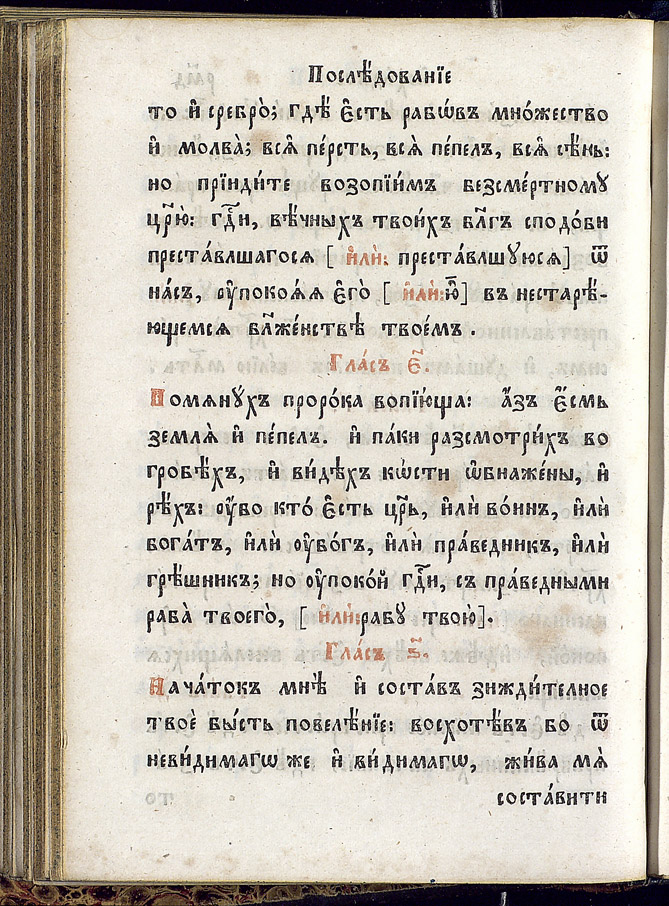 Послѣ́дованїе
то и҆ сребро̀; гдѣ̀ є҆́сть рабѡ́въ мно́жество
и҆ молва̀; всѧ̑ пе́рсть, всѧ̑ пе́пелъ, всѧ̑ сѣ́нь:
но прїиди́те возопїи́мъ безсме́ртному
цр҃ю̀: гдⷭ҇и, вѣ́чныхъ твои́хъ бл҃гъ сподо́би
преста́влшагосѧ [ и҆лѝ: преста́влшуюсѧ] ѿ
на́съ, ᲂу҆покоѧ́ѧ є҆го̀ [ и҆лѝ: ю҆̀] въ нестарѣ́-
ющемсѧ бл҃же́нствѣ твое́мъ .
Гла́съ є҃.
Помѧну́хъ проро́ка вопїю́ща: а҆́зъ є҆́смь
землѧ̀ и҆ пе́пелъ. и҆ па́ки разсмотри́хъ во
гробѣ́хъ, и҆ ви́дѣхъ кѡ́сти ѡ҆бнаже́ны, и҆
рѣ́хъ: ᲂу҆̀бо кто́ є҆сть цр҃ь, и҆лѝ во́инъ, и҆лѝ
бога́тъ, и҆лѝ ᲂу҆бо́гъ, и҆лѝ пра́ведникъ, и҆лѝ
грѣ́шникъ; но ᲂу҆поко́й гдⷭ҇и, съ пра́ведными
раба̀ твоего̀, [ и҆лѝ: рабу̀ твою̀].
Гла́съ ѕ҃.
Нача́токъ мнѣ̀ и҆ соста́въ зижди́телное
твоѐ бы́сть повелѣ́нїе: восхотѣ́въ бо ѿ
неви́димагѡ же и҆ ви́димагѡ, жи́ва мѧ̀
соста́вити